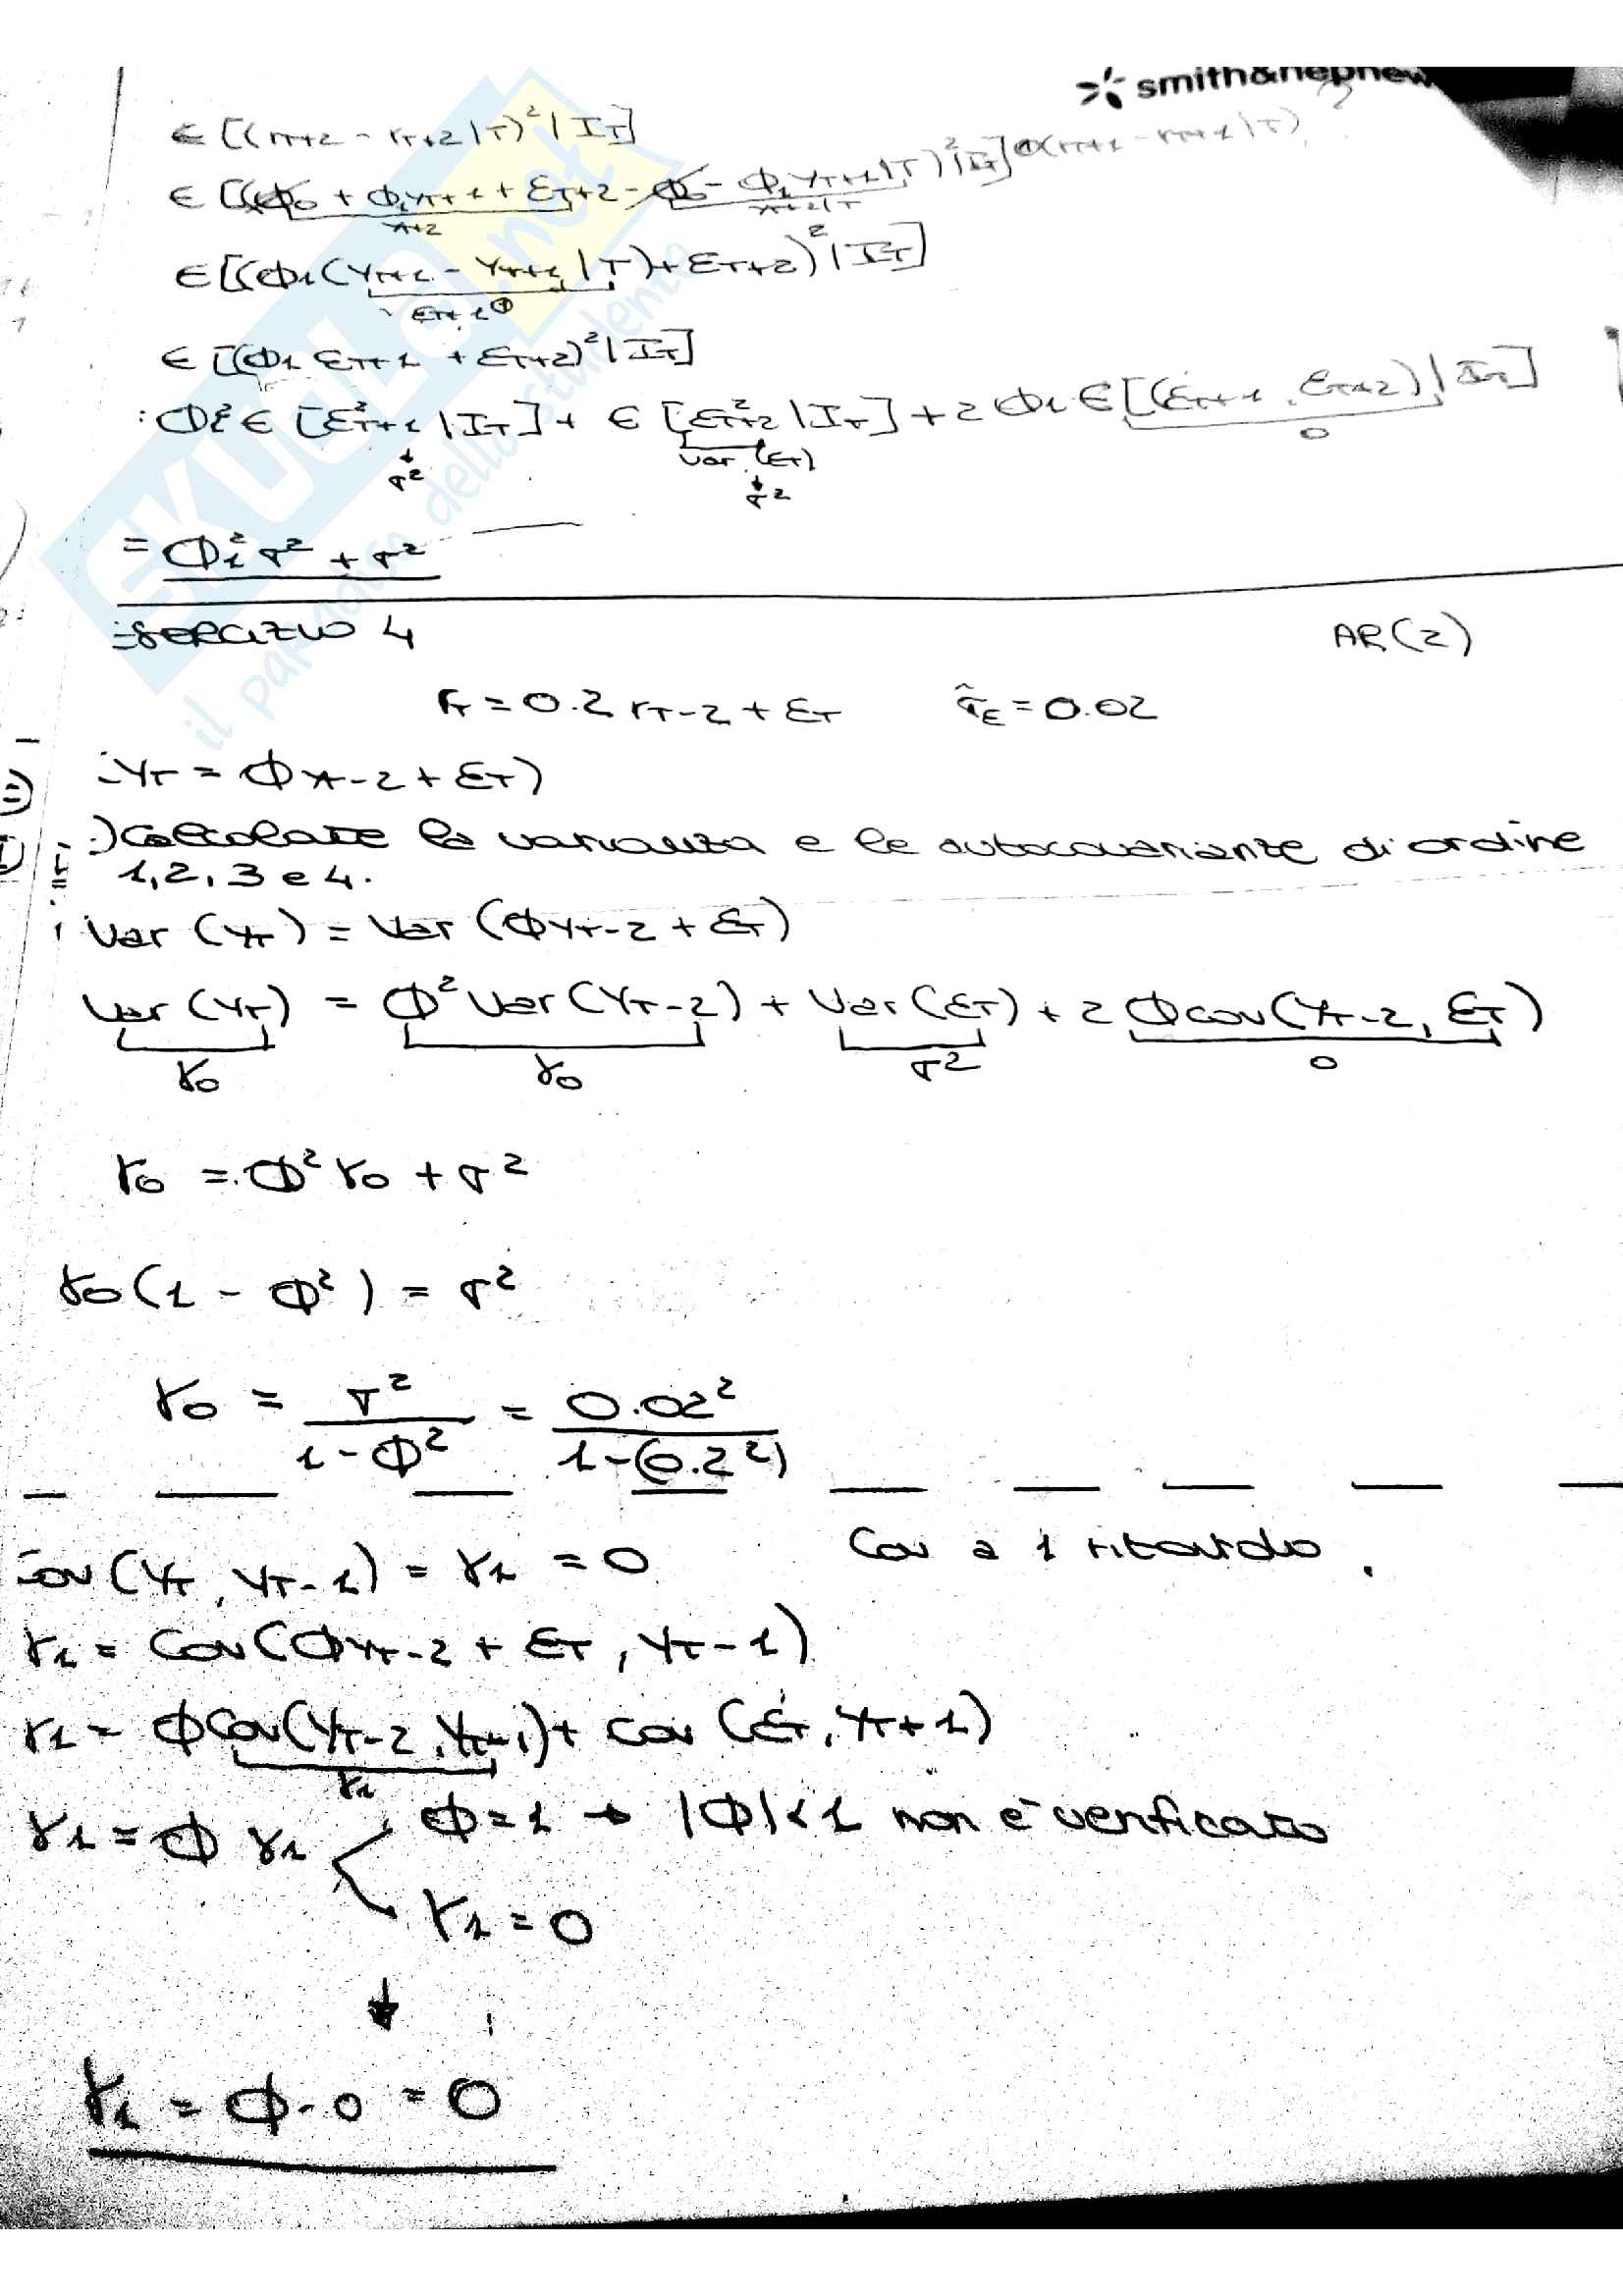 smith&nephew
E[(rT+2 - rT+2|T)² | IT]
E[(ϕ0 + ϕ1 yT+1 + εT+2 - ϕ0 - ϕ1 yT+1|T)² | IT] ①(rT+1 - rT+1|T)
rT+2 rT+2|T
E[(ϕ1(yT+1 - yT+1|T) + εT+2)² | IT]
εT+1 ①
E[(ϕ1 εT+1 + εT+2)² | IT]
ϕ1² E[ε²T+1 | IT] + E[ε²T+2 | IT] + 2 ϕ1 E[(εT+1, εT+2) | IT]
σ² Var(εT) 0
σ²
= ϕ1² σ² + σ²
Esercizio 4 AR(2)
rT = 0.2 rT-2 + εT σ̂ε = 0.02
yT = ϕ yT-2 + εT)
) Calcolare la varianza e le autocovarianze di ordine
1, 2, 3 e 4.
Var (yT) = Var (ϕ yT-2 + εT)
Var (yT) = ϕ² Var (yT-2) + Var (εT) + 2 ϕ cov (yT-2, εT)
γ0 γ0 σ² 0
γ0 = ϕ² γ0 + σ²
γ0 (1 - ϕ²) = σ²
γ0 = σ² / 1 - ϕ² = 0.02² / 1 - (0.2²)
Cov (yT, yT-1) = γ1 = 0 Cov a 1 ritardo.
γ1 = Cov (ϕ yT-2 + εT, yT-1)
γ1 = ϕ Cov (yT-2, yT-1) + cov (εT, yT+1)
γ1
γ1 = ϕ γ1 ϕ = 1 → |ϕ| < 1 non è verificato
γ1 = 0
↓
γ1 = ϕ · 0 = 0
SKUOLA.net
il paradiso dello studente